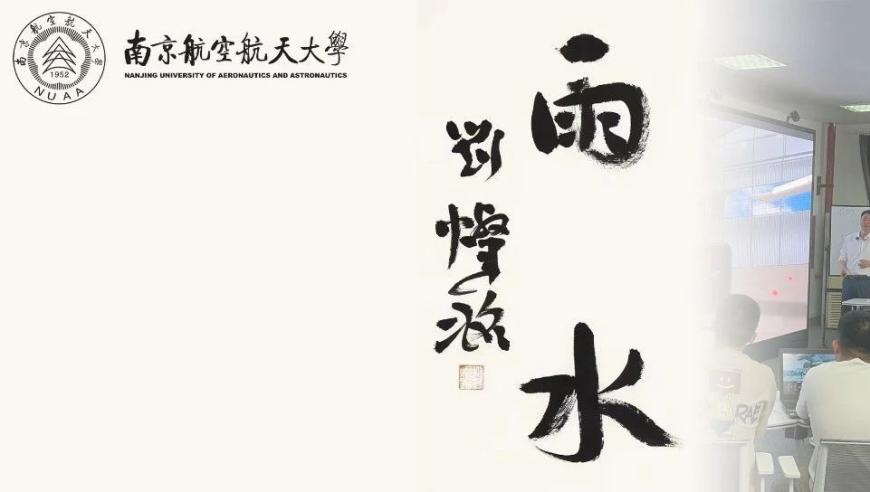 南京航空航天大學
1952
NUAA
南京航空航天大學
NANJING UNIVERSITY OF AERONAUTICS AND ASTRONAUTICS
雨水
劉燦銘